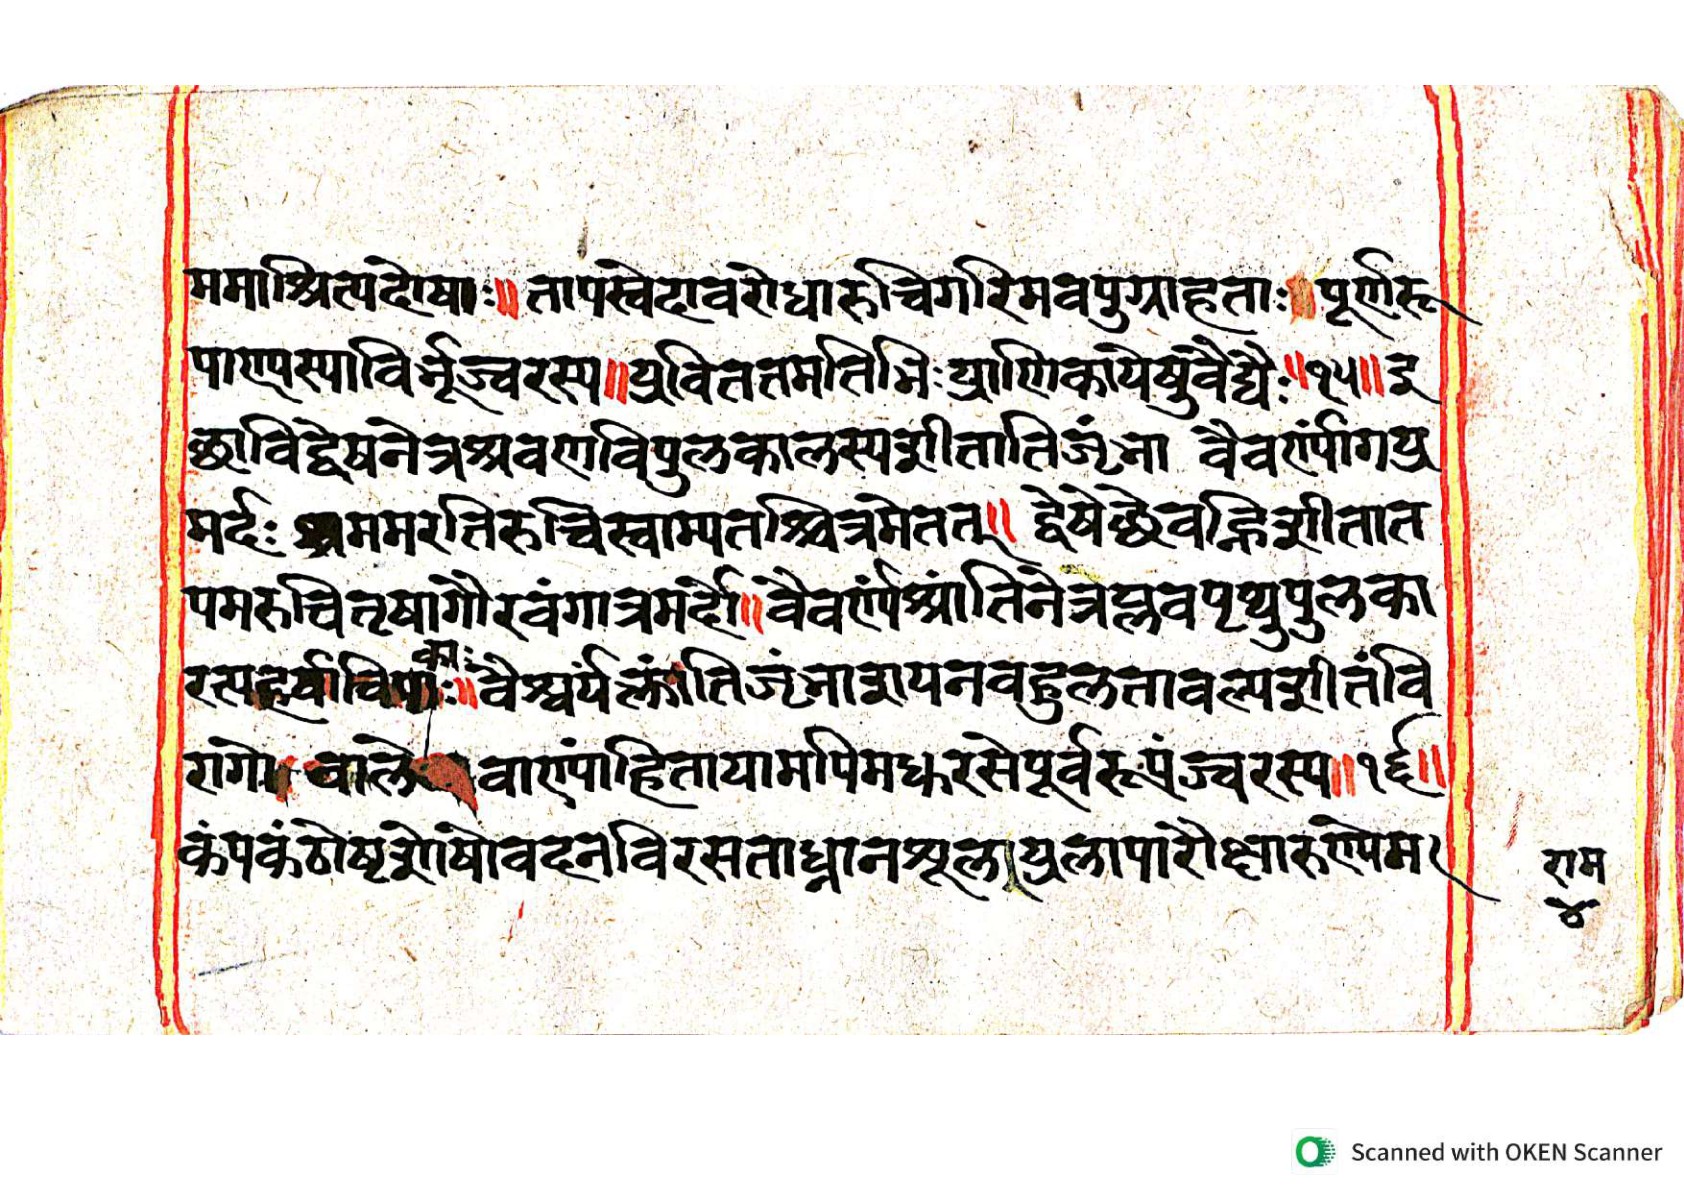 ममाश्रित्यदोषाः॥ तापस्वेदावरोधारुचिगरिमवपुग्राहताः पूर्णरू
पाण्यस्याविर्भूज्वरस्य॥प्रविततमतिभिःप्राणिकायेषुवैद्यैः॥१५॥इ
छाविद्वेषनेत्रश्रवणविपुलकालस्यशीतातिजृंभा वैवर्ण्यांगप्र
मर्दः भ्रममरतिरुचिस्वाम्यतश्चित्रमेतत्॥ द्वेषेछैवह्निशीतात
पमरुचितृषागौरवंगात्रमर्दो॥वैवर्ण्यंश्रांतिनेत्रप्लवपृथुपुलका
रत्यहर्षाविपाकाः॥वैश्वर्यंक्लांतिजृंभाशयनबहुलतावल्पशीतंवि
रागो बाले वाण्यांहितायामपिमधररसेपूर्वरूपंज्वरस्य॥१६॥
कंपकंठोष्टशोषोवदनविरसताध्मानशूलाप्रलापारौक्ष्यारुण्यम
राम
४
Scanned with OKEN Scanner